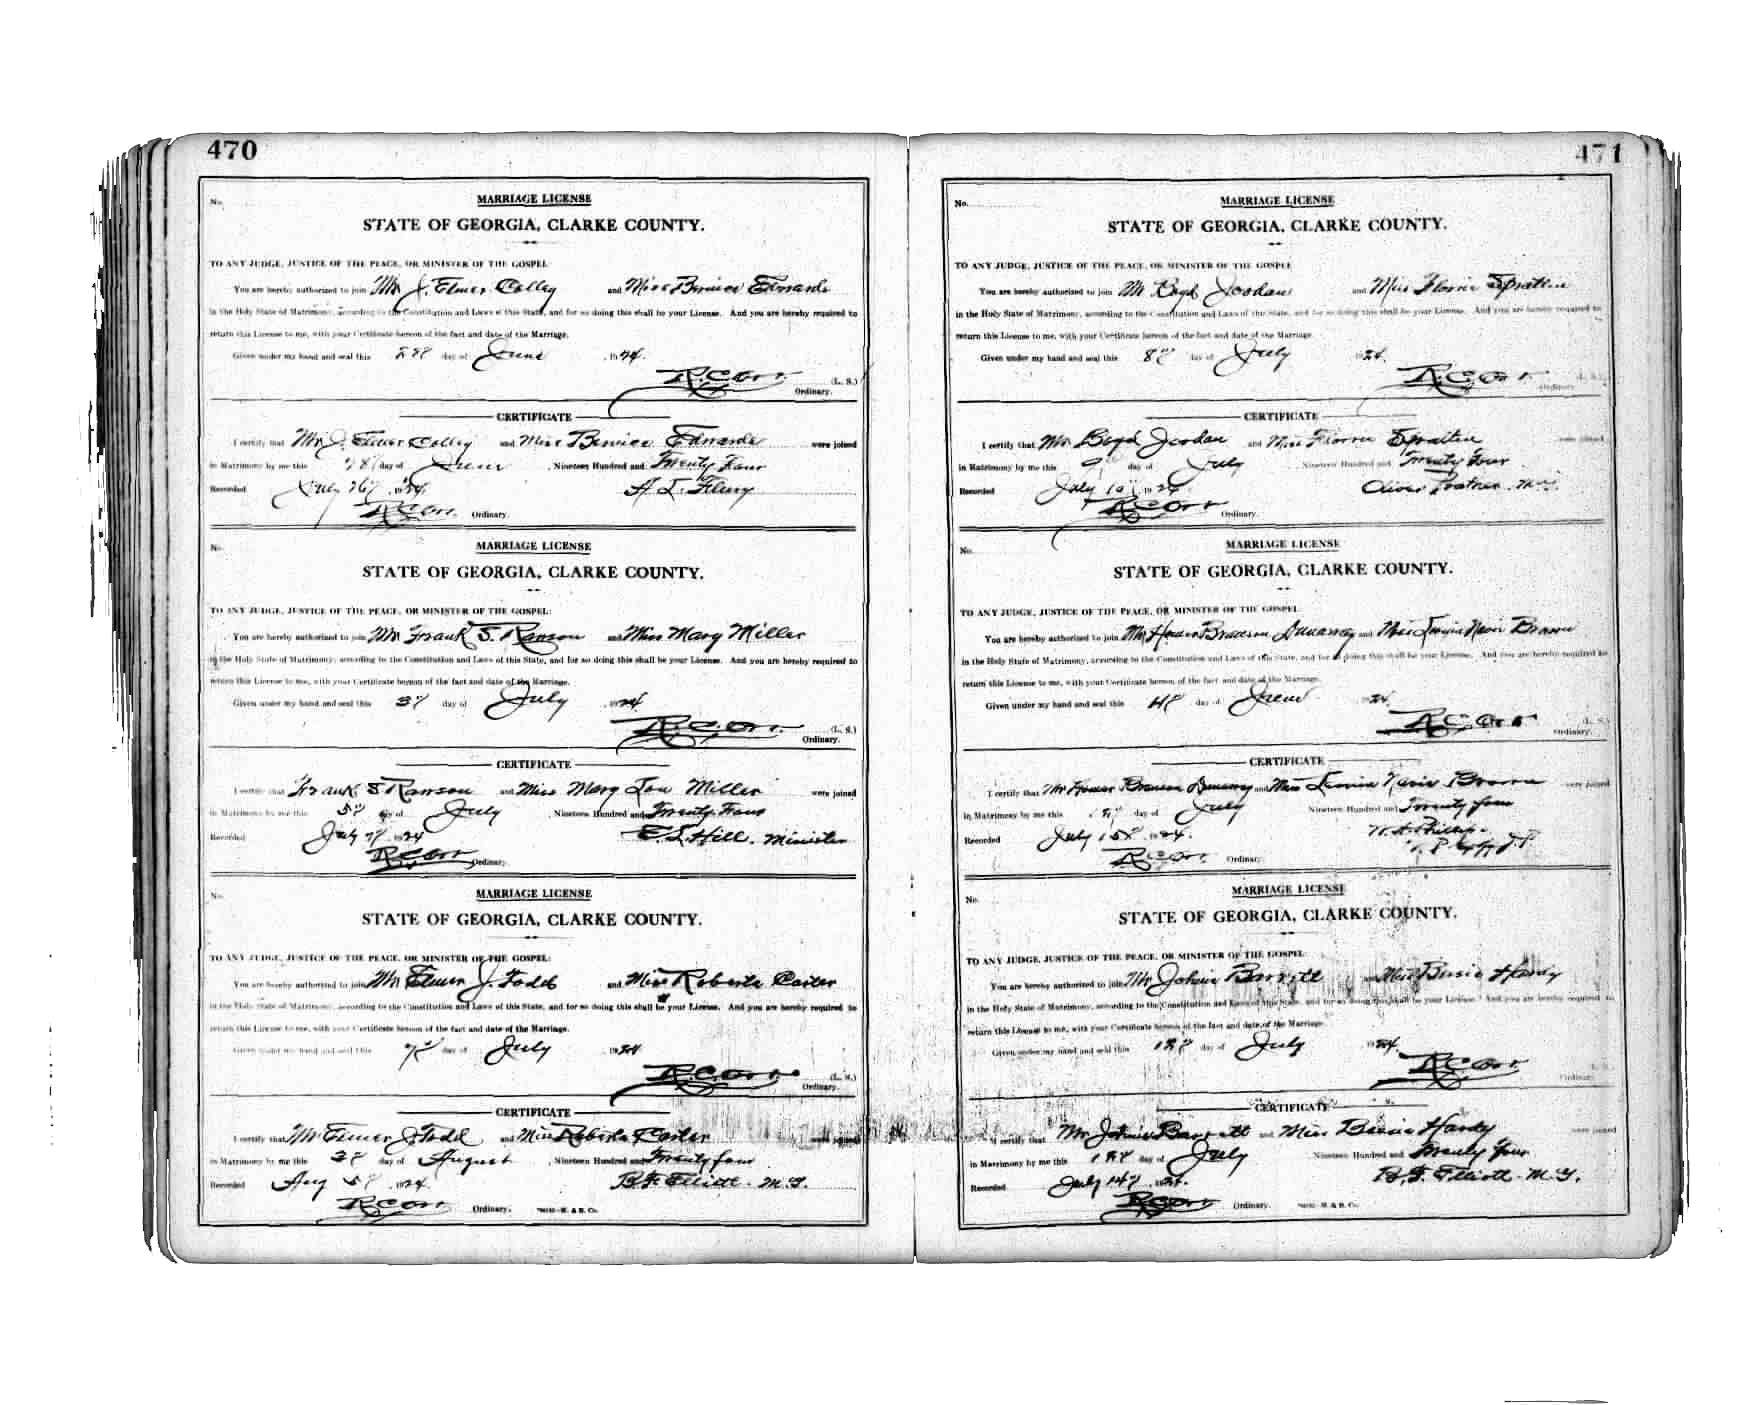 470
No.
MARRIAGE LICENSE
STATE OF GEORGIA, CLARKE COUNTY.
TO ANY JUDGE, JUSTICE OF THE PEACE, OR MINISTER OF THE GOSPEL:
You are hereby authorized to join Mr J. Elmer Colley and Miss Bernice Edwards
in the Holy State of Matrimony, according to the Constitution and Laws of this State, and for so doing this shall be your License. And you are hereby required to
return this License to me, with your Certificate hereon of the fact and date of the Marriage.
Given under my hand and seal this 28" day of June , 1924.
R.C. Orr (L. S.)
Ordinary.
CERTIFICATE
I certify that Mr J. Elmer Colley and Miss Bernice Edwards were joined
in Matrimony by me this 28" day of June , Nineteen Hundred and Twenty Four
Recorded July 26" 1924. A. L. Flury
R.C. Orr. Ordinary.
No.
MARRIAGE LICENSE
STATE OF GEORGIA, CLARKE COUNTY.
TO ANY JUDGE, JUSTICE OF THE PEACE, OR MINISTER OF THE GOSPEL:
You are hereby authorized to join Mr Frank S. Ranson and Miss Mary Miller
in the Holy State of Matrimony, according to the Constitution and Laws of this State, and for so doing this shall be your License. And you are hereby required to
return this License to me, with your Certificate hereon of the fact and date of the Marriage.
Given under my hand and seal this 3" day of July , 1924
R.C. Orr. (L. S.)
Ordinary.
CERTIFICATE
I certify that Frank S Ranson and Miss Mary Lou Miller were joined
in Matrimony by me this 5" day of July Nineteen Hundred and Twenty Four
Recorded July 7" 1924 E. L. Hill. Minister
R.C. Orr Ordinary.
No.
MARRIAGE LICENSE
STATE OF GEORGIA, CLARKE COUNTY.
TO ANY JUDGE, JUSTICE OF THE PEACE, OR MINISTER OF THE GOSPEL:
You are hereby authorized to join Mr Elmer J. Todd and Miss Roberta Carter
in the Holy State of Matrimony, according to the Constitution and Laws of this State, and for so doing this shall be your License. And you are hereby required to
return this License to me, with your Certificate hereon of the fact and date of the Marriage.
Given under my hand and seal this 7" day of July 1924
R.C. Orr. (L. S.)
Ordinary.
CERTIFICATE
I certify that Mr Elmer J. Todd and Miss Roberta Carter were joined
in Matrimony by me this 3" day of August , Nineteen Hundred and Twenty four
Recorded Aug 5" 1924. B. F. Elliott. M. G.
R.C. Orr Ordinary.
471
No.
MARRIAGE LICENSE
STATE OF GEORGIA, CLARKE COUNTY.
TO ANY JUDGE, JUSTICE OF THE PEACE, OR MINISTER OF THE GOSPEL
You are hereby authorized to join Mr Boyd Jordan and Miss Florrie Spratlin
in the Holy State of Matrimony, according to the Constitution and Laws of this State, and for so doing this shall be your License. And you are hereby required to
return this License to me, with your Certificate hereon of the fact and date of the Marriage.
Given under my hand and seal this 8" day of July 1924.
R.C. Orr (L. S.)
Ordinary.
CERTIFICATE
I certify that Mr Boyd Jordan and Miss Florrie Spratlin were joined
in Matrimony by me this 9" day of July , Nineteen Hundred and Twenty Four
Recorded July 10" 1924. Oliver
R.C. Orr Ordinary.
No.
MARRIAGE LICENSE
STATE OF GEORGIA, CLARKE COUNTY.
TO ANY JUDGE, JUSTICE OF THE PEACE, OR MINISTER OF THE GOSPEL
You are hereby authorized to join Mr Branson Dunaway and Miss Brown
in the Holy State of Matrimony, according to the Constitution and Laws of this State, and for so doing this shall be your License. And you are hereby required to
return this License to me, with your Certificate hereon of the fact and date of the Marriage.
Given under my hand and seal this day of June 1924.
R.C. Orr (L. S.)
Ordinary.
CERTIFICATE
I certify that Mr Branson Dunaway and Miss Brown were joined
in Matrimony by me this day of July Nineteen Hundred and Twenty four
Recorded July 15" 1924. Phillips.
R.C. Orr. Ordinary. J. P.
No.
MARRIAGE LICENSE
STATE OF GEORGIA, CLARKE COUNTY.
TO ANY JUDGE, JUSTICE OF THE PEACE, OR MINISTER OF THE GOSPEL:
You are hereby authorized to join Mr Johnie Barrett and Miss Bessie Hardy
in the Holy State of Matrimony, according to the Constitution and Laws of this State, and for so doing this shall be your License. And you are hereby required to
return this License to me, with your Certificate hereon of the fact and date of the Marriage.
Given under my hand and seal this 12" day of July 1924.
R.C. Orr.
Ordinary.
CERTIFICATE
I certify that Mr Johnie Barrett and Miss Bessie Hardy were joined
in Matrimony by me this day of July Nineteen Hundred and Twenty Four
Recorded July 14" 1924. B. F. Elliott. M. G.
R.C. Orr Ordinary.